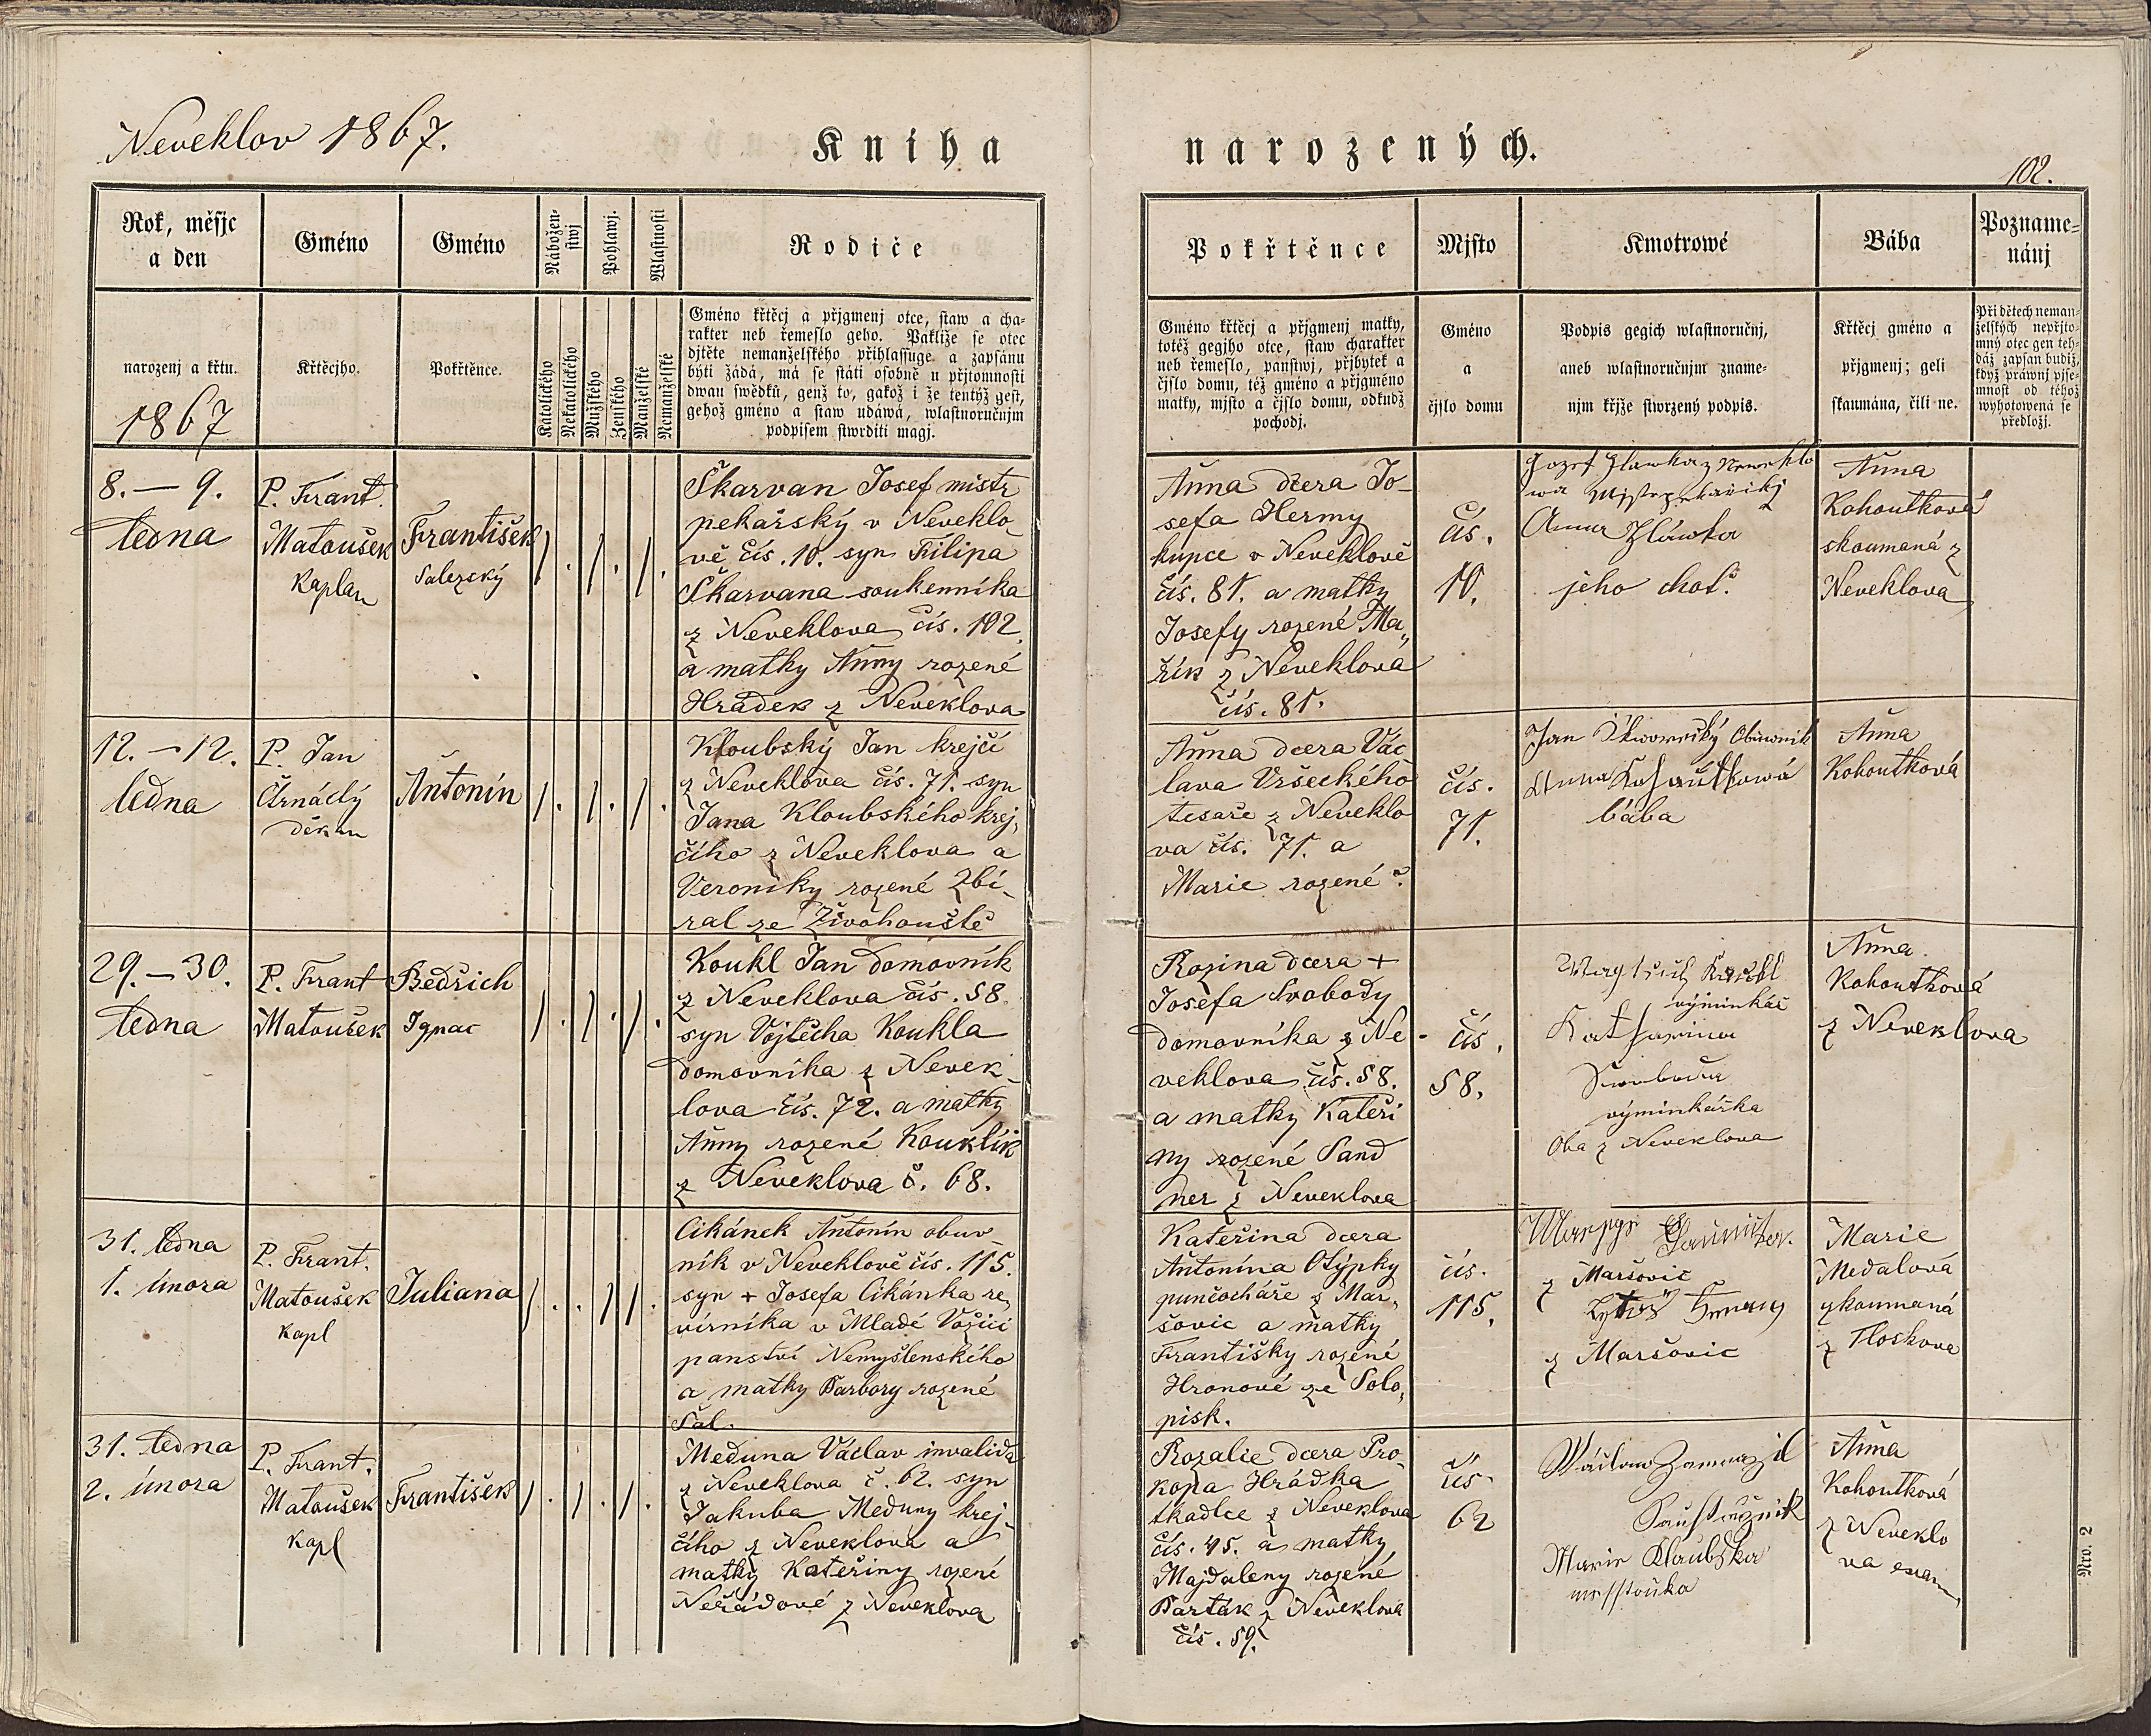 Neveklov 1867.
Kniha narozených.
102.
Rok, měsjc
a den
Gméno
Gméno
Nábožen-
stwj
Pohlawj.
Wlastnosti
Rodiče
Pokřtěnce
Mjsto
Kmotrowé
Bába
Pozname-
nánj
narozenj a křtu.
1867
Křtěcjho.
Pokřtěnce.
Katolického
Nekatolického
Mužského
Ženského
Manželské
Nemanželské
Gméno křtěcj a přjgmenj otce, staw a cha-
rakter neb řemeslo geho. Pakliže se otec
djtěte nemanželského přihlassuge a zapsánu
býti žádá, má se státi osobně u přjtomnosti
dwau swědků, genž to, gakož i že tentýž gest,
gehož gméno a staw udáwá, wlastnoručnjm
podpisem stwrditi magj.
Gméno křtěcj a přjgmenj matky,
totéž gegjho otce, staw charakter
neb řemeslo, panstwj, přjbytek a
čjslo domu, též gméno a přjgméno
matky, mjsto a čjslo domu, odkudž
pochodj.
Gméno
a
čjslo domu
Podpis gegich wlastnoručnj,
aneb wlastnoručnjm zname-
njm křjže stwrzený podpis.
Křtěcj gméno a
přjgmenj; geli
skaumána, čili ne.
Při dětech neman-
želských nepřjto-
mný otec gen teh-
dáž zapsan budiž,
když práwnj pjse-
mnost od téhož
wyhotowená se
předložj.
8. — 9.
ledna
P. Frant.
Matoušek
Kaplan
František
Salezský
Škarvan Josef mistr
pekařský v Neveklo
vě čís. 10. syn Filipa
Škarvana soukenníka
z Neveklova čís. 102.
a matky Anny rozené
Hrádek z Neveklova
Anna dcera Jo-
sefa Hermy
kupce v Neveklově
čís. 81. a matky
Josefy rozené Ma„
řík z Neveklova
čís. 81.
čís.
10.
Jozef Hlawka z Neweklo
wa
Anna Hláwka
jeho choť.
Anna
Kohoutková
skoumaná z
Neveklova
12. — 12.
ledna
P. Jan
Črnáclý
děkan
Antonín
Kloubský Jan krejčí
z Neveklova čís. 71. syn
Jana Kloubského krej„
čího z Neveklova a
Veroniky rozené Zbí-
ral ze Živohouště
Anna dcera Vác
lava Vršeckého
tesaře z Neveklo
va čís. 71. a
Marie rozené ?.
čís.
71.
Jan Skworecký Obuwnik
Anna Kohautkowá
bába
Anna
Kohoutková
29. — 30.
ledna
P. Frant
Matoušek
Bedřich
Ignac
Koukl Jan domovník
z Neveklova čís. 58.
syn Vojtěcha Koukla
domovníka z Nevek-
lova čís. 72. a matky
Anny rozené Kouklík
z Neveklova č. 68.
Rozina dcera +
Josefa Svobody
domovníka z Ne-
veklova čís. 58.
a matky Kateři
ny rozené Sand
ner z Neveklova
čís.
58.
výminkář
Katharina
Swoboda
výminkářka
Oba z Neveklova
Anna
Kohoutková
z Neveklova
31. ledna
1. února
P. Frant.
Matoušek
kapl
Juliana
Cikánek Antonín obuv-
ník v Neveklově čís. 115.
syn + Josefa Cikánka re„
vírníka v Mladé Vožici
panství Nemyšlenského
a matky Barbory rozené
Šal.
Kateřina dcera
Antonína Otýpky
punčocháře z Mar„
šovic a matky
Františky rozené
Hronové ze Solo„
pisk.
čís.
115.
z Maršovic
z Maršovic
Marie
Medalová
zkoumaná
z Tloskova
31. ledna
2. února
P. Frant.
Matoušek
kapl
František
Meduna Václav invalida
z Neveklova č. 62. syn
Jakuba Meduny krej-
čího z Neveklova a
matky Kateřiny rozené
Neřádové z Neveklova
Rozalie dcera Pro-
kopa Hrádka
tkadlce z Neveklova
čís. 45. a matky
Majdaleny rozené
Barták z Neveklova
čís. 59.
čís.
62
Wáclaw Zamrazil
Marie Klaubska
Anna
Kohoutková
z Neveklo
va exam,
Nro. 2